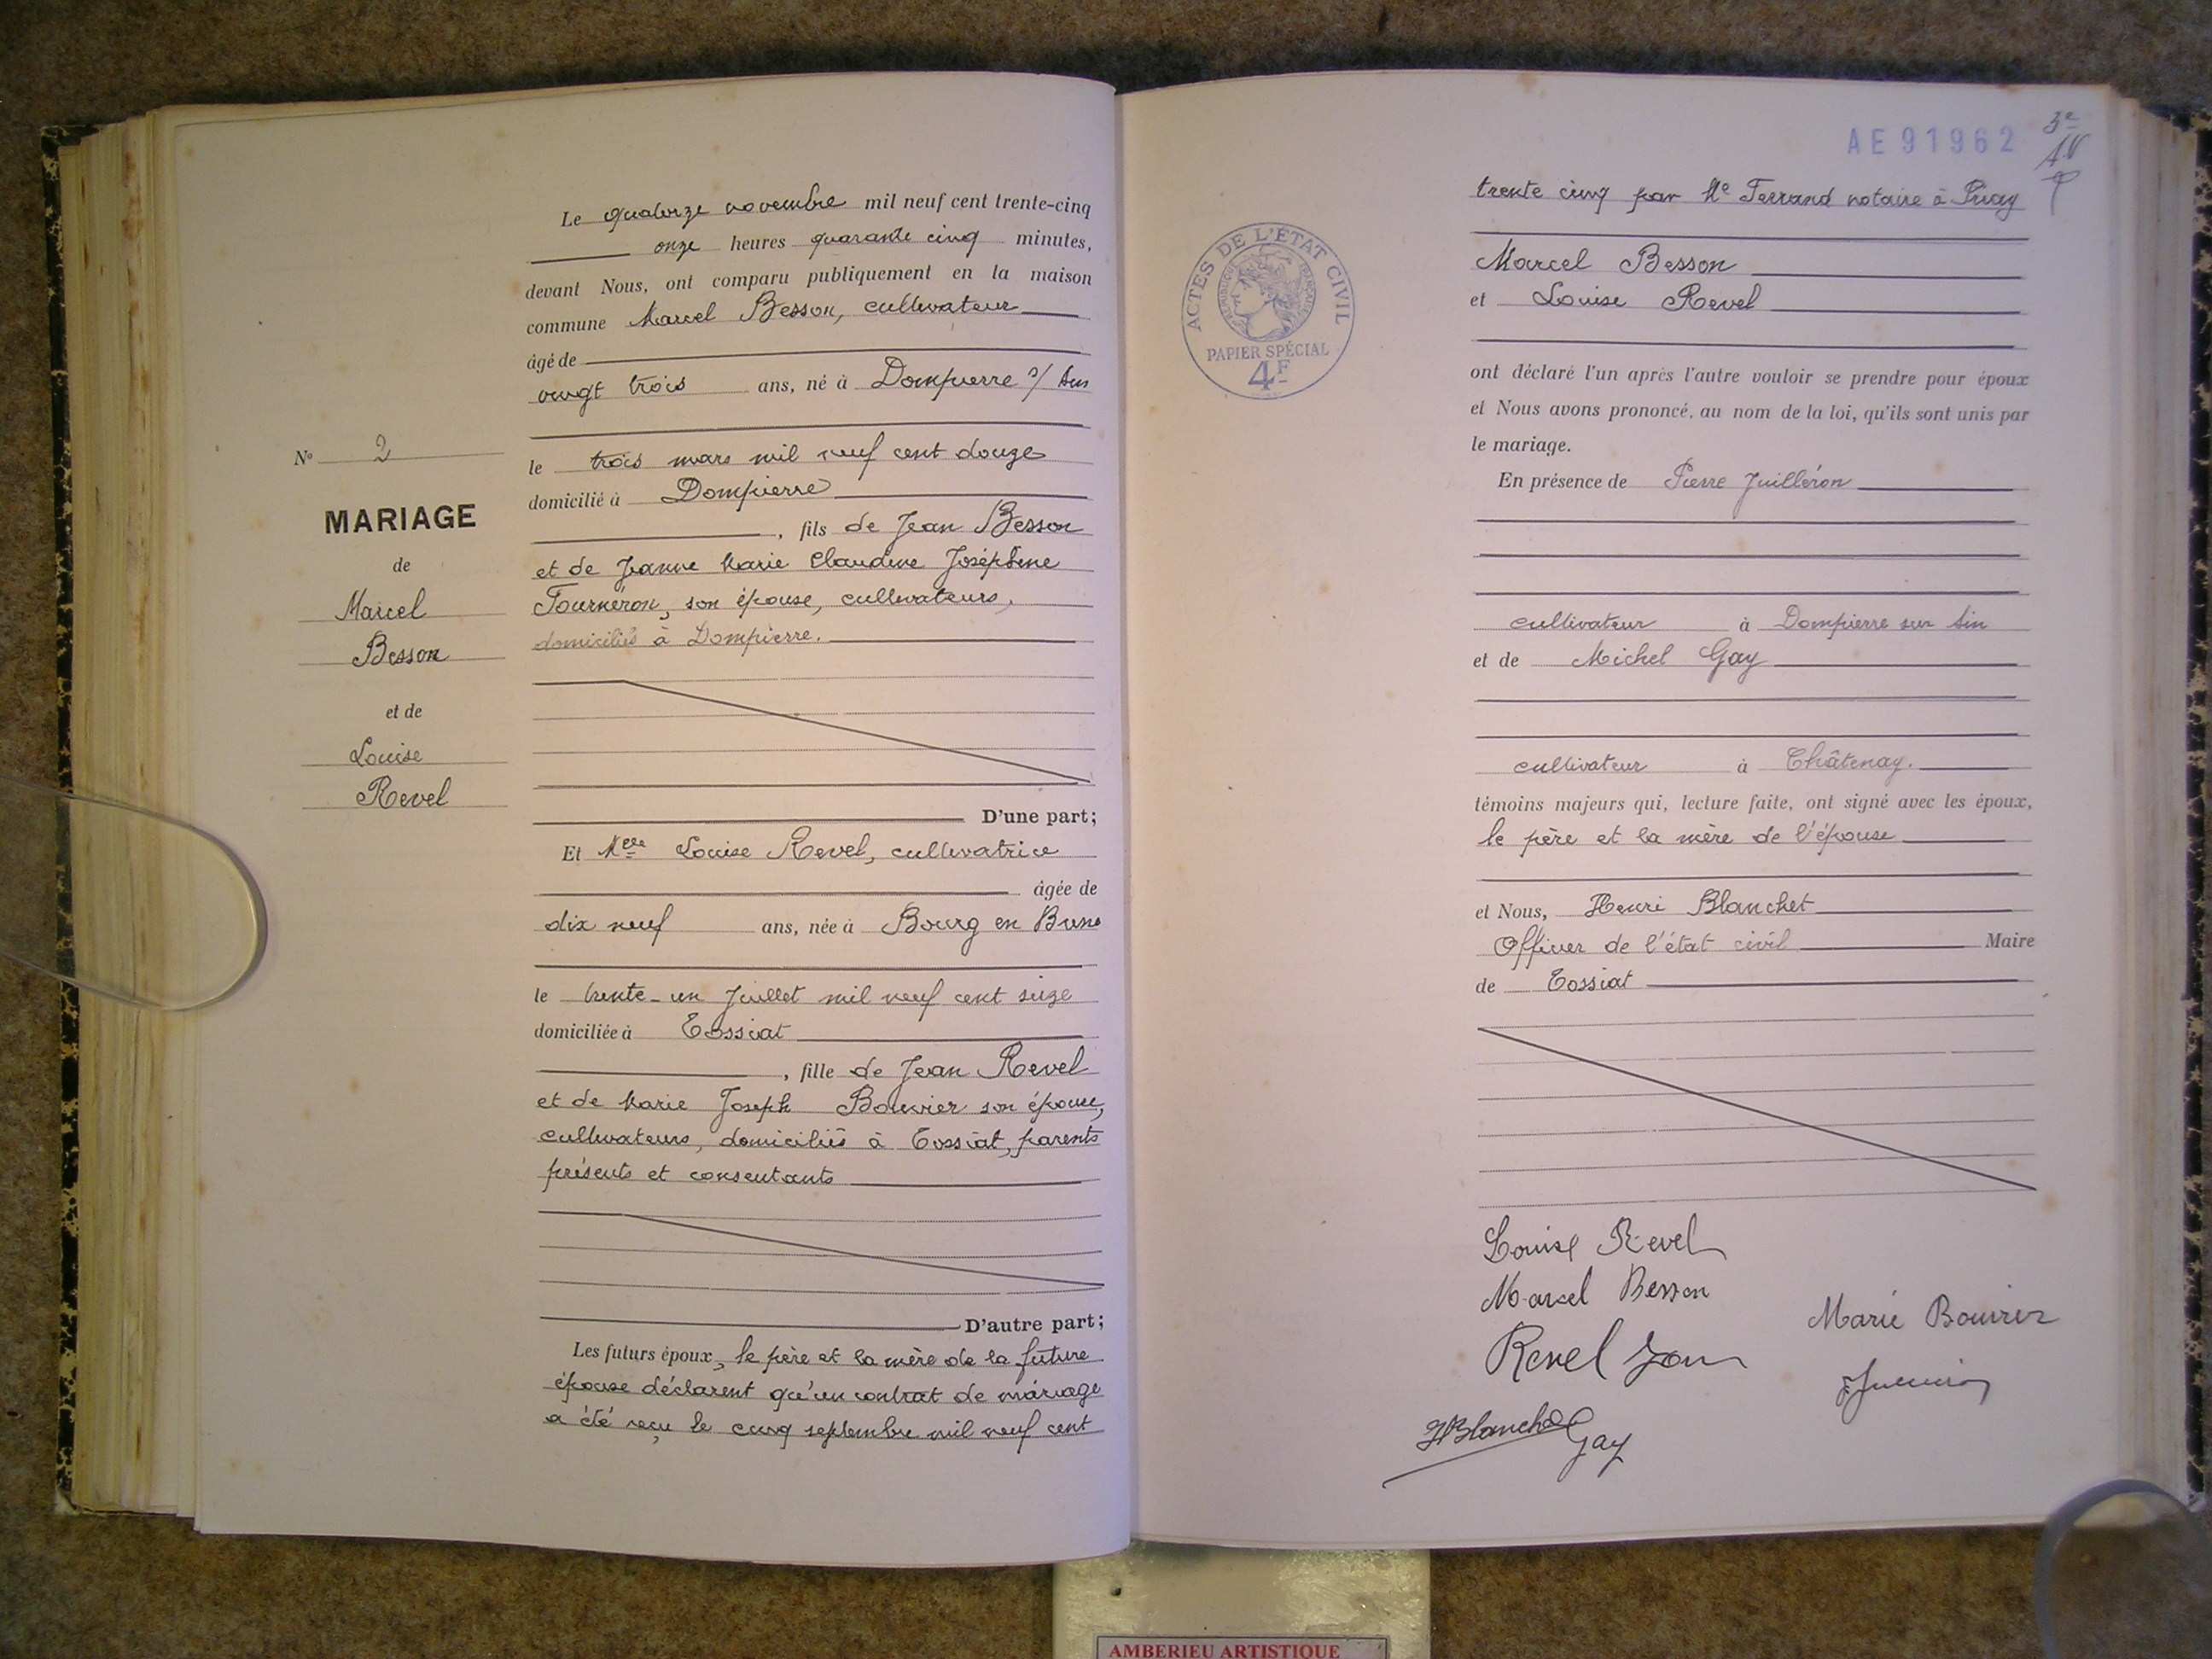 N° 2
MARIAGE
de
Marcel
Besson
et de
Louise
Revel
Le quatorze novembre mil neuf cent trente-cinq
onze heures quarante cinq minutes,
devant Nous, ont comparu publiquement en la maison
commune Marcel Besson, cultivateur
âgé de
vingt trois ans, né à Dompierre s/ Ain
le trois mars mil neuf cent douze
domicilié à Dompierre
, fils de Jean Besson
et de Jeanne Marie Claudine Joséphine
Tournéron, son épouse, cultivateurs,
domiciliés à Dompierre.
D'une part;
Et Melle Louise Revel, cultivatrice
âgée de
dix neuf ans, née à Bourg en Bresse
le trente-un Juillet mil neuf cent seize
domiciliée à Tossiat
, fille de Jean Revel
et de Marie Joseph Bouvier son épouse,
cultivateurs, domiciliés à Tossiat, parents
présents et consentants
D'autre part;
Les futurs époux, le père et la mère de la future
épouse déclarent qu'un contrat de mariage
a été reçu le cinq septembre mil neuf cent
AE91962
3e
trente cinq par Me Ferrand notaire à Priay
ACTES DE L'ÉTAT CIVIL
RÉPUBLIQUE FRANÇAISE
PAPIER SPÉCIAL
4F
Marcel Besson
et Louise Revel
ont déclaré l'un après l'autre vouloir se prendre pour époux
et Nous avons prononcé, au nom de la loi, qu'ils sont unis par
le mariage.
En présence de Pierre Juilléron
cultivateur à Dompierre sur Ain
et de Michel Gay
cultivateur à Châtenay.
témoins majeurs qui, lecture faite, ont signé avec les époux,
le père et la mère de l'épouse
et Nous, Henri Blanchet
Officier de l'état civil Maire
de Tossiat
Louise Revel
Marcel Besson
Marie Bouvier
Revel Jean
HBlanchet
Gay
AMBERIEU ARTISTIQUE